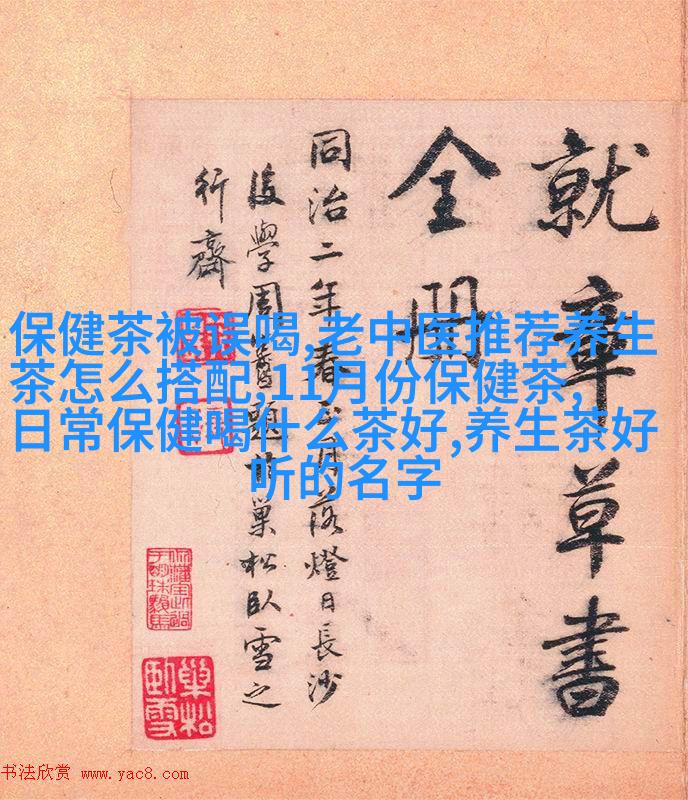 就章草書
全
同治二年春正月落燈日長沙
後學周題於巢松臥雪之
行齋
保健茶被误喝,老中医推荐养生
茶怎么搭配,11月份保健茶,
日常保健喝什么茶好,养生茶好
听的名字
巢松
臥雪
书法欣赏 www.yac8.com